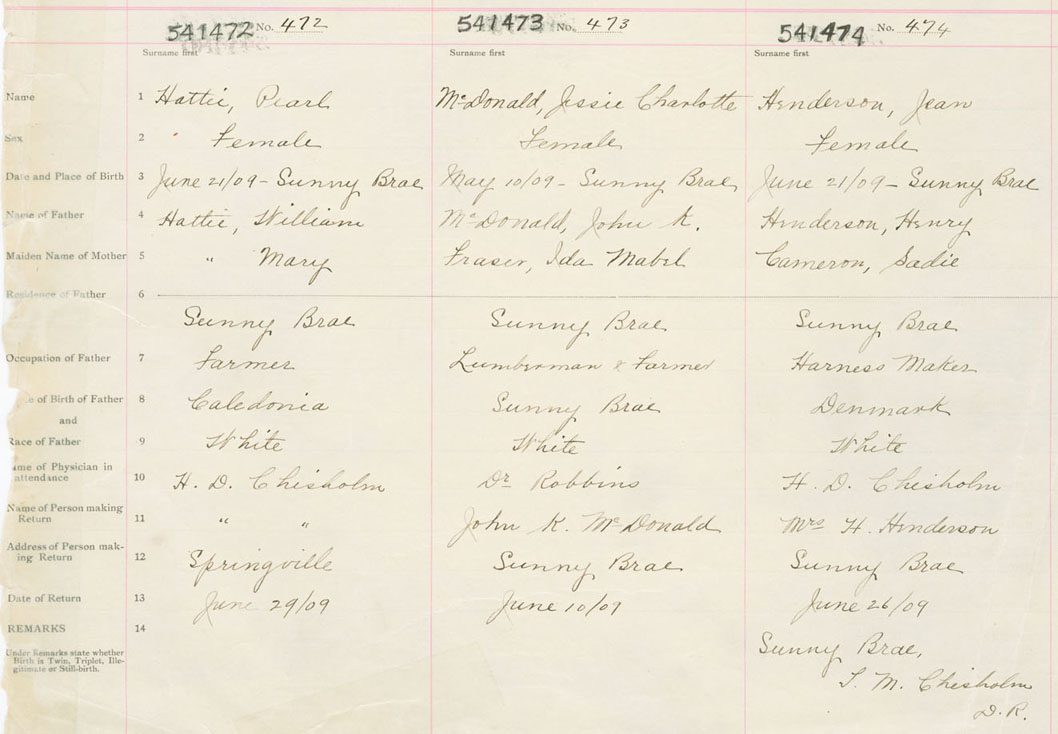 541472 No. 472 541473 No. 473 541474 No. 474
Surname first Surname first Surname first
Name 1 Hattie, Pearl McDonald, Jessie Charlotte Henderson, Jean
Sex 2 Female Female Female
Date and Place of Birth 3 June 21/09 - Sunny Brae May 10/09 - Sunny Brae June 21/09 - Sunny Brae
Name of Father 4 Hattie, William McDonald, John K. Henderson, Henry
Maiden Name of Mother 5 " Mary Fraser, Ida Mabel Cameron, Sadie
Residence of Father 6
Sunny Brae Sunny Brae Sunny Brae
Occupation of Father 7 Farmer Lumberman & Farmer Harness Maker
e of Birth of Father 8 Caledonia Sunny Brae Denmark
and
Race of Father 9 White White White
ame of Physician in
attendance 10 H. D. Chisholm Dr Robbins H. D. Chisholm
Name of Person making
Return 11 " " John K. McDonald Mrs H. Henderson
Address of Person mak-
ing Return 12 Springville Sunny Brae Sunny Brae
Date of Return 13 June 29/09 June 10/09 June 26/09
REMARKS 14
Under Remarks state whether
Birth is Twin, Triplet, Ille-
gitimate or Still-birth.
Sunny Brae,
Chisholm
D.R.